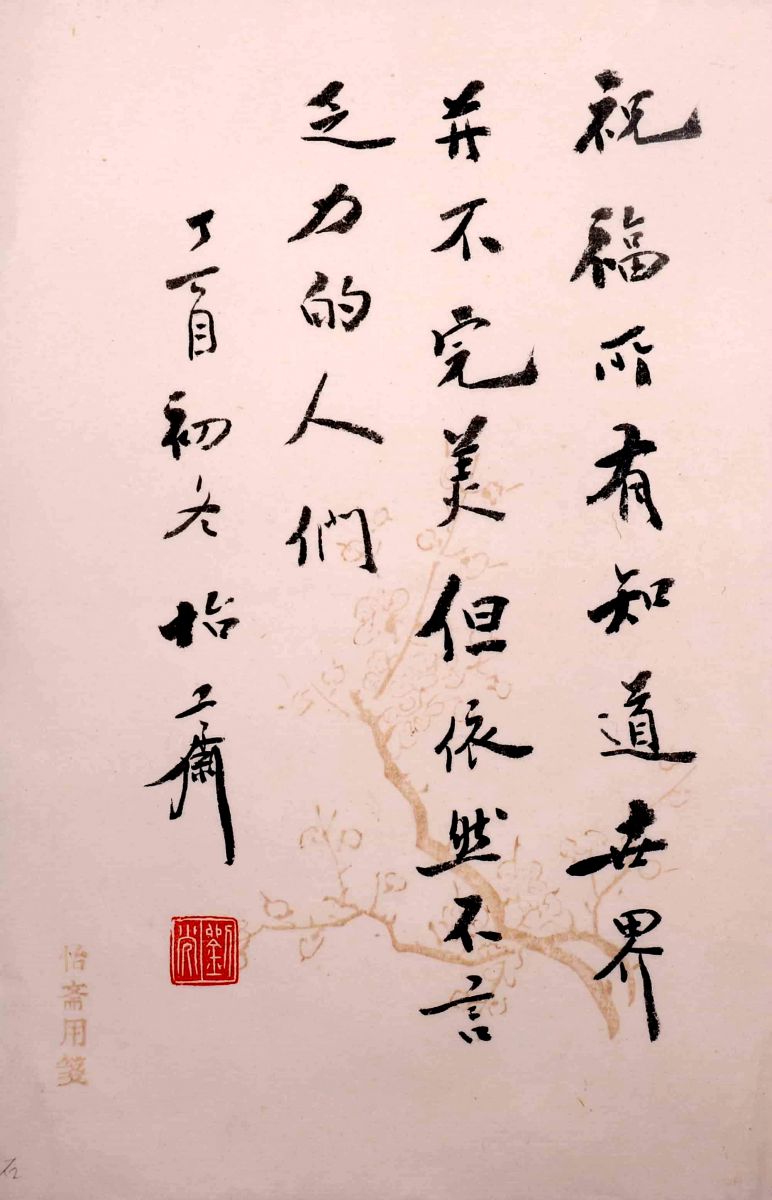 祝福所有知道世界
并不完美但依然不言
乏力的人們
丁酉初冬怡齋
怡斋用箋